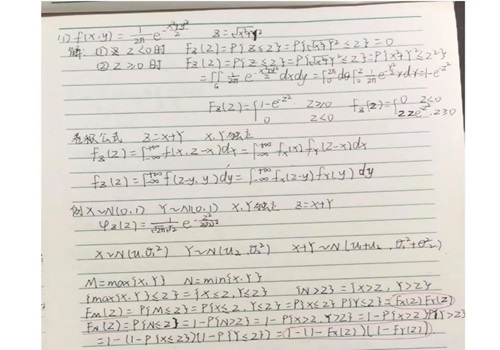 (1) f(x,y) = 1/2π e^(-(x²+y²)/2)   Z = √(x²+y²)
解: ① 当 Z<0时 F_Z(Z) = P{Z≤Z} = P{√(x²+y²) ≤Z} = 0
② Z≥0时 F_Z(Z) = P{Z≤Z} = P{√(x²+y²) ≤Z} = P{x²+y²≤Z²}
F_Z(Z) = { 1-e^(-Z²) Z≥0
0 Z<0   f_Z(Z) = { 0 Z<0
2Ze^(-Z²) Z≥0
卷积公式 Z=X+Y X,Y独立
f_Z(Z) = ∫_(-∞)^(+∞) f(x,Z-x)dx = ∫_(-∞)^(+∞) f_X(x) f_Y(Z-x)dx
f_Z(Z) = ∫_(-∞)^(+∞) f(Z-y,y)dy = ∫_(-∞)^(+∞) f_X(Z-y) f_Y(y)dy
例 X~N(0,1) Y~N(0,1) X,Y独立 Z=X+Y
X~N(u₁,σ₁²) Y~N(u₂,σ₂²) X+Y~N(u₁+u₂, σ₁²+σ₂²)
M=max{X,Y} N=min{X,Y}
{max(X,Y)≤Z} = {X≤Z,Y≤Z} {N>Z} = {X>Z, Y>Z}
F_M(Z) = P{M≤Z} = P{X≤Z,Y≤Z} = P{X≤Z}P{Y≤Z} = F_X(Z)F_Y(Z)
F_N(Z) = P{N≤Z} = 1-P{N>Z} = 1-P{X>Z,Y>Z} = 1-P{X>Z}P{Y>Z}
= 1-(1-P{X≤Z})(1-P{Y≤Z}) = 1-(1-F_X(Z))(1-F_Y(Z))